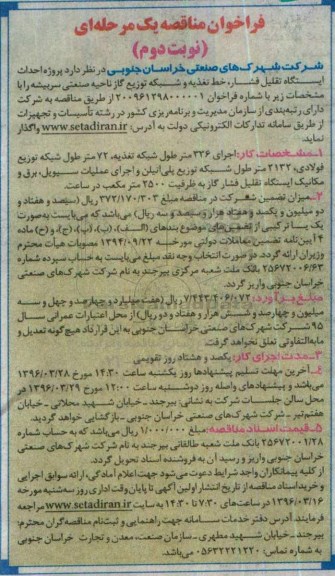 فراخوان مناقصه یک مرحله‌ای
(نوبت دوم)
شرکت شهرک‌های صنعتی خراسان جنوبی در نظر دارد پروژه احداث
ایستگاه تقلیل فشار، خط تغذیه و شبکه توزیع گاز ناحیه صنعتی سربیشه را با
مشخصات زیر با شماره فراخوان ۲۰۰۹۶۱۲۹۸۰۰۰۰۰۱ از طریق مناقصه به شرکت
دارای رتبه‌بندی از سازمان مدیریت و برنامه‌ریزی کشور در رشته تأسیسات و تجهیزات
از طریق سامانه تدارکات الکترونیکی دولت به آدرس: www.setadiran.ir واگذار
نماید.
۱ـ مشخصات کار: اجرای ۳۳۶ متر طول شبکه تغذیه، ۷۲ متر طول شبکه توزیع
فولادی، ۲۱۳۲ متر طول شبکه توزیع پلی‌اتیلن و اجرای عملیات سیویل، برق و
مکانیک ایستگاه تقلیل فشار گاز به ظرفیت ۲۵۰۰ متر مکعب در ساعت.
۲ـ میزان تضمین شرکت در مناقصه مبلغ ۳۷۲/۱۷۰/۳۰۳ ریال (سیصد و هفتاد و
دو میلیون و یکصد و هفتاد هزار و سیصد و سه ریال) می‌باشد که می‌بایست به‌صورت
یک یا ترکیبی از تضمین‌های موضوع بندهای (الف)، (ب)، (پ)، (ج)، و (ح) ماده
۴ آیین‌نامه تضمین معاملات دولتی مورخه ۱۳۹۴/۰۹/۲۲ مصوبات هیأت محترم
وزیران ارائه گردد. در صورت انتخاب وجه نقد مبلغ می‌بایست به حساب سپرده شماره
۲۵۶۷۲۰۰۶/۶۳ بانک ملت شعبه مرکزی بیرجند به نام شرکت شهرک‌های صنعتی
خراسان جنوبی واریز گردد.
مبلغ برآورد: ۷/۴۴۳/۴۰۶/۰۷۲ ریال (هفت میلیارد و چهارصد و چهل و سه
میلیون و چهارصد و شش هزار و هفتاد و دو ریال) از محل اعتبارات عمرانی سال
۹۵ شرکت شهرک‌های صنعتی خراسان جنوبی به این قرارداد هیچ‌گونه تعدیل و
مابه‌التفاوتی تعلق نخواهد گرفت.
۳ـ مدت اجرای کار: یکصد و هشتاد روز تقویمی
۴ـ آخرین مهلت تسلیم پیشنهادها روز یکشنبه ساعت ۱۴:۳۰ مورخ ۱۳۹۶/۰۳/۲۸
می‌باشد و پیشنهادهای واصله روز دوشنبه ساعت ۱۲:۰۰ مورخ ۱۳۹۶/۰۳/۲۹ در
محل سالن جلسات شرکت به نشانی: بیرجند ـ خیابان شهید محلاتی ـ خیابان
هفتم تیر ـ شرکت شهرک‌های صنعتی خراسان جنوبی ـ بازگشایی خواهد گردید.
۵ـ قیمت اسناد مناقصه: مبلغ ۱/۰۰۰/۰۰۰ ریال می‌باشد که به حساب شماره
۲۵۶۷۲۰۰۱/۲۸ بانک ملت شعبه طالقانی بیرجند به نام شرکت شهرک‌های صنعتی
خراسان جنوبی واریز و رسید آن به فروشنده اسناد تحویل گردد.
از کلیه پیمانکاران واجد شرایط دعوت می‌شود جهت اعلام آمادگی، ارائه سوابق اجرایی
و خرید اسناد مناقصه از تاریخ انتشار اولین آگهی تا پایان وقت اداری روز سه‌شنبه مورخه
۱۳۹۶/۰۳/۱۶ در ساعت‌های ۷:۳۰ تا ۱۴:۳۰ به سایت www.setadiran.ir مراجعه
فرمایند. آدرس دفتر خدمات سامانه جهت راهنمایی و ثبت‌نام مناقصه‌گران محترم:
بیرجند ـ خیابان شهید مطهری ـ سازمان صنعت، معدن و تجارت خراسان جنوبی
به شماره تماس: ۰۵۶۳۲۲۲۱۲۲۰ می‌باشد.